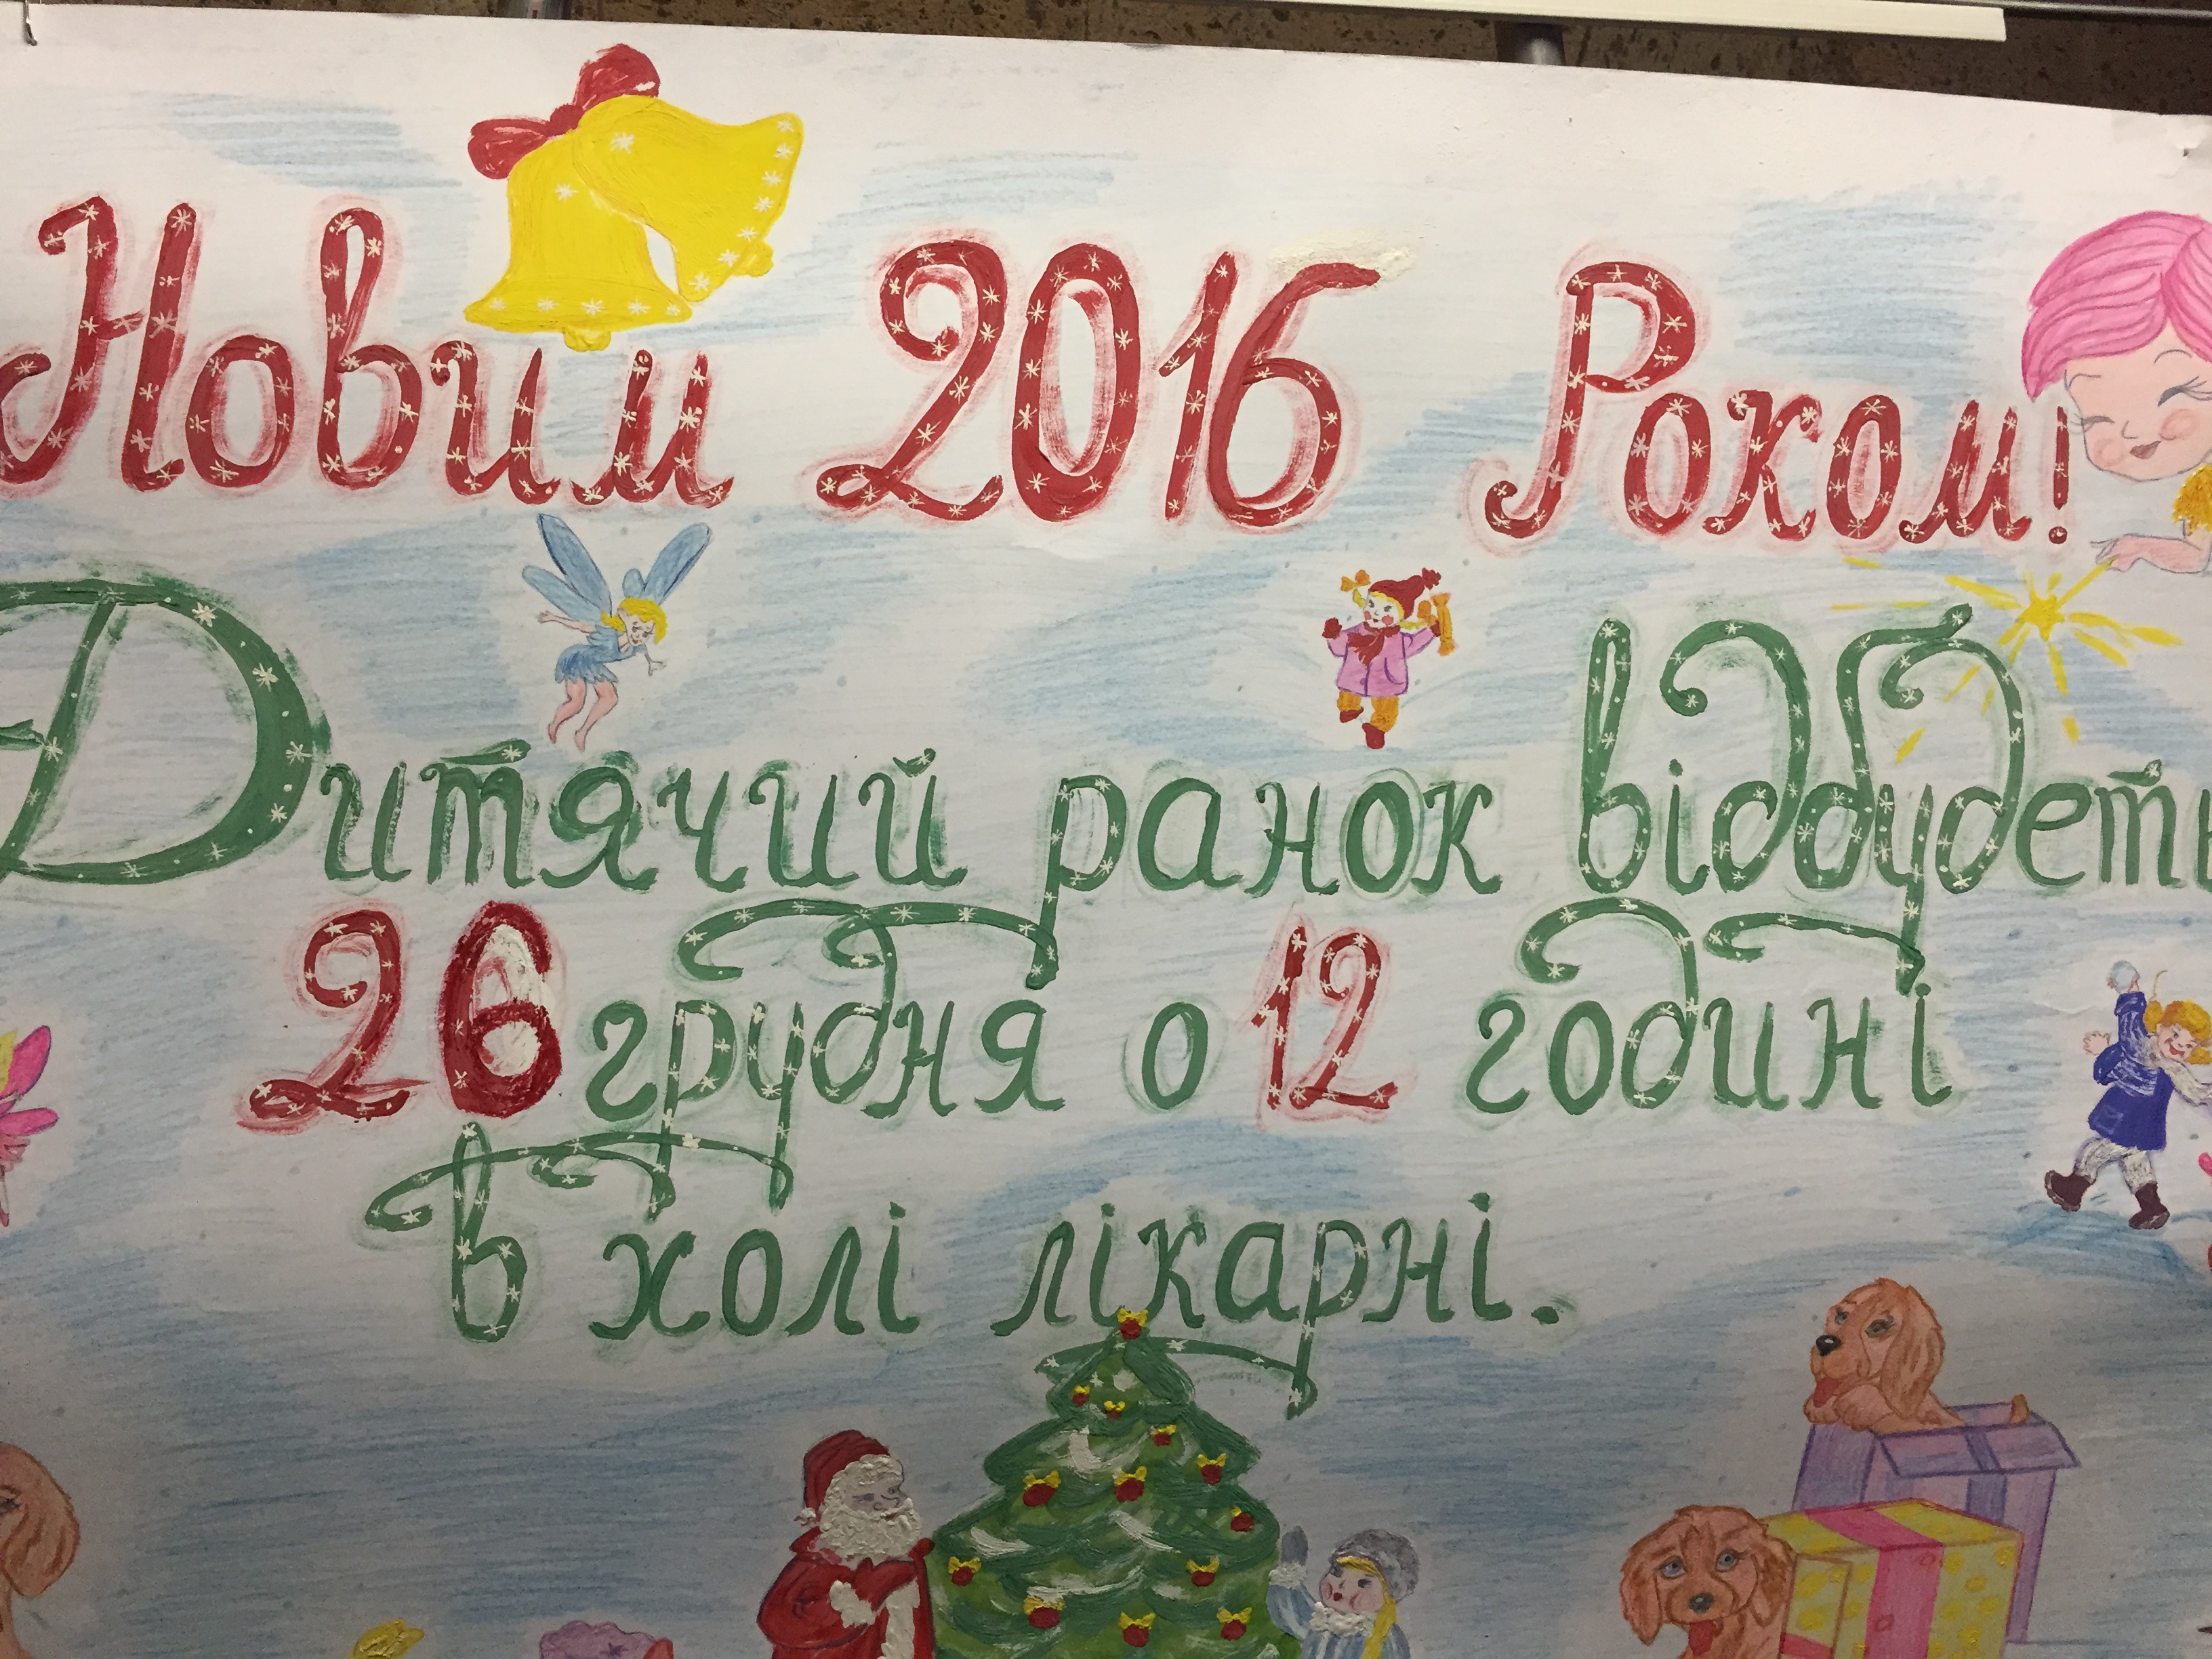 Новим 2016 Роком!
Дитячий ранок відбудеть
26 грудня о 12 годині
в холі лікарні.